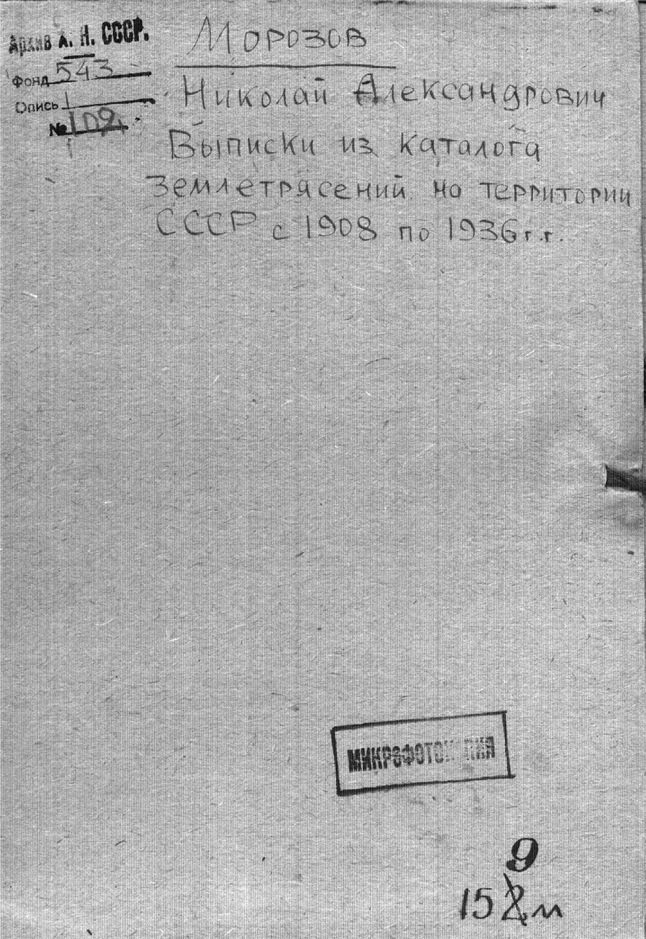 Архив А. Н. СССР.
Фонд 543
Опись 1
№ 109.
Морозов
Николай Александрович
Выписки из каталога
землетрясений на территории
СССР с 1908 по 1936 г.г.
МИКРОФОТОКОПИЯ
9
152 л